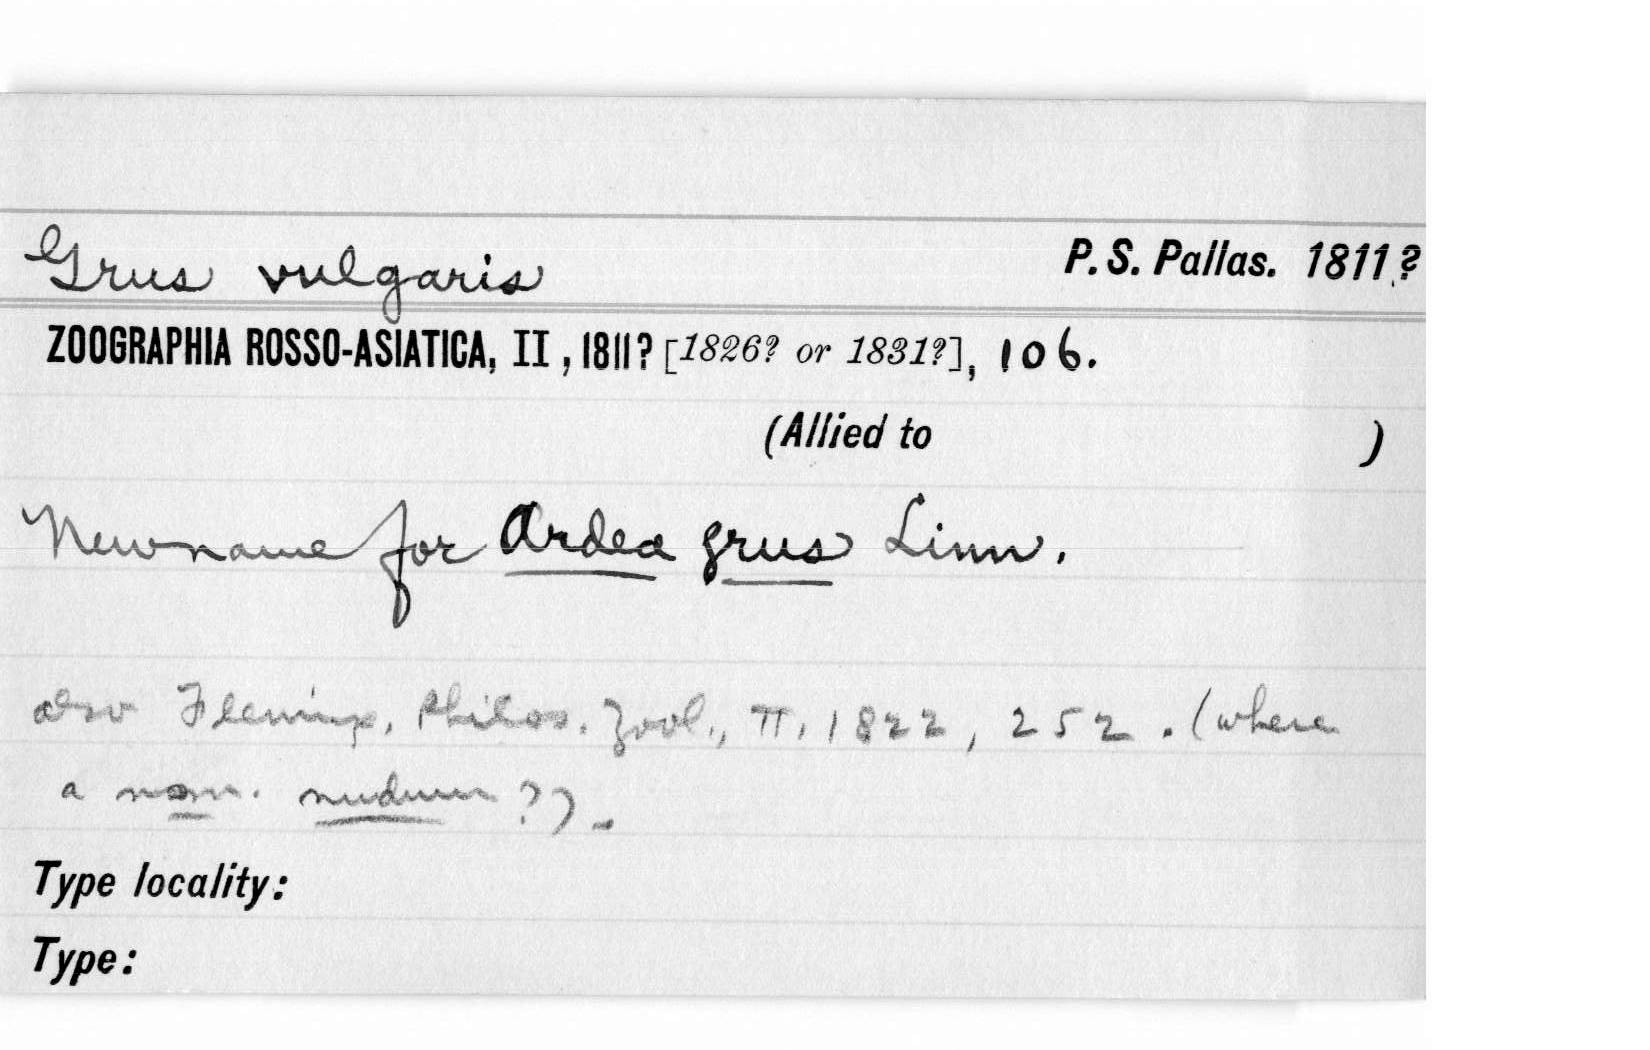 Grus vulgaris P. S. Pallas. 1811?
ZOOGRAPHIA ROSSO-ASIATICA, II, 1811? [1826? or 1831?], 106.
(Allied to )
New name for Ardea grus Linn.
also Fleming, Philos. Zool., II, 1822, 252. (where
a nom. nudum ?).
Type locality:
Type: